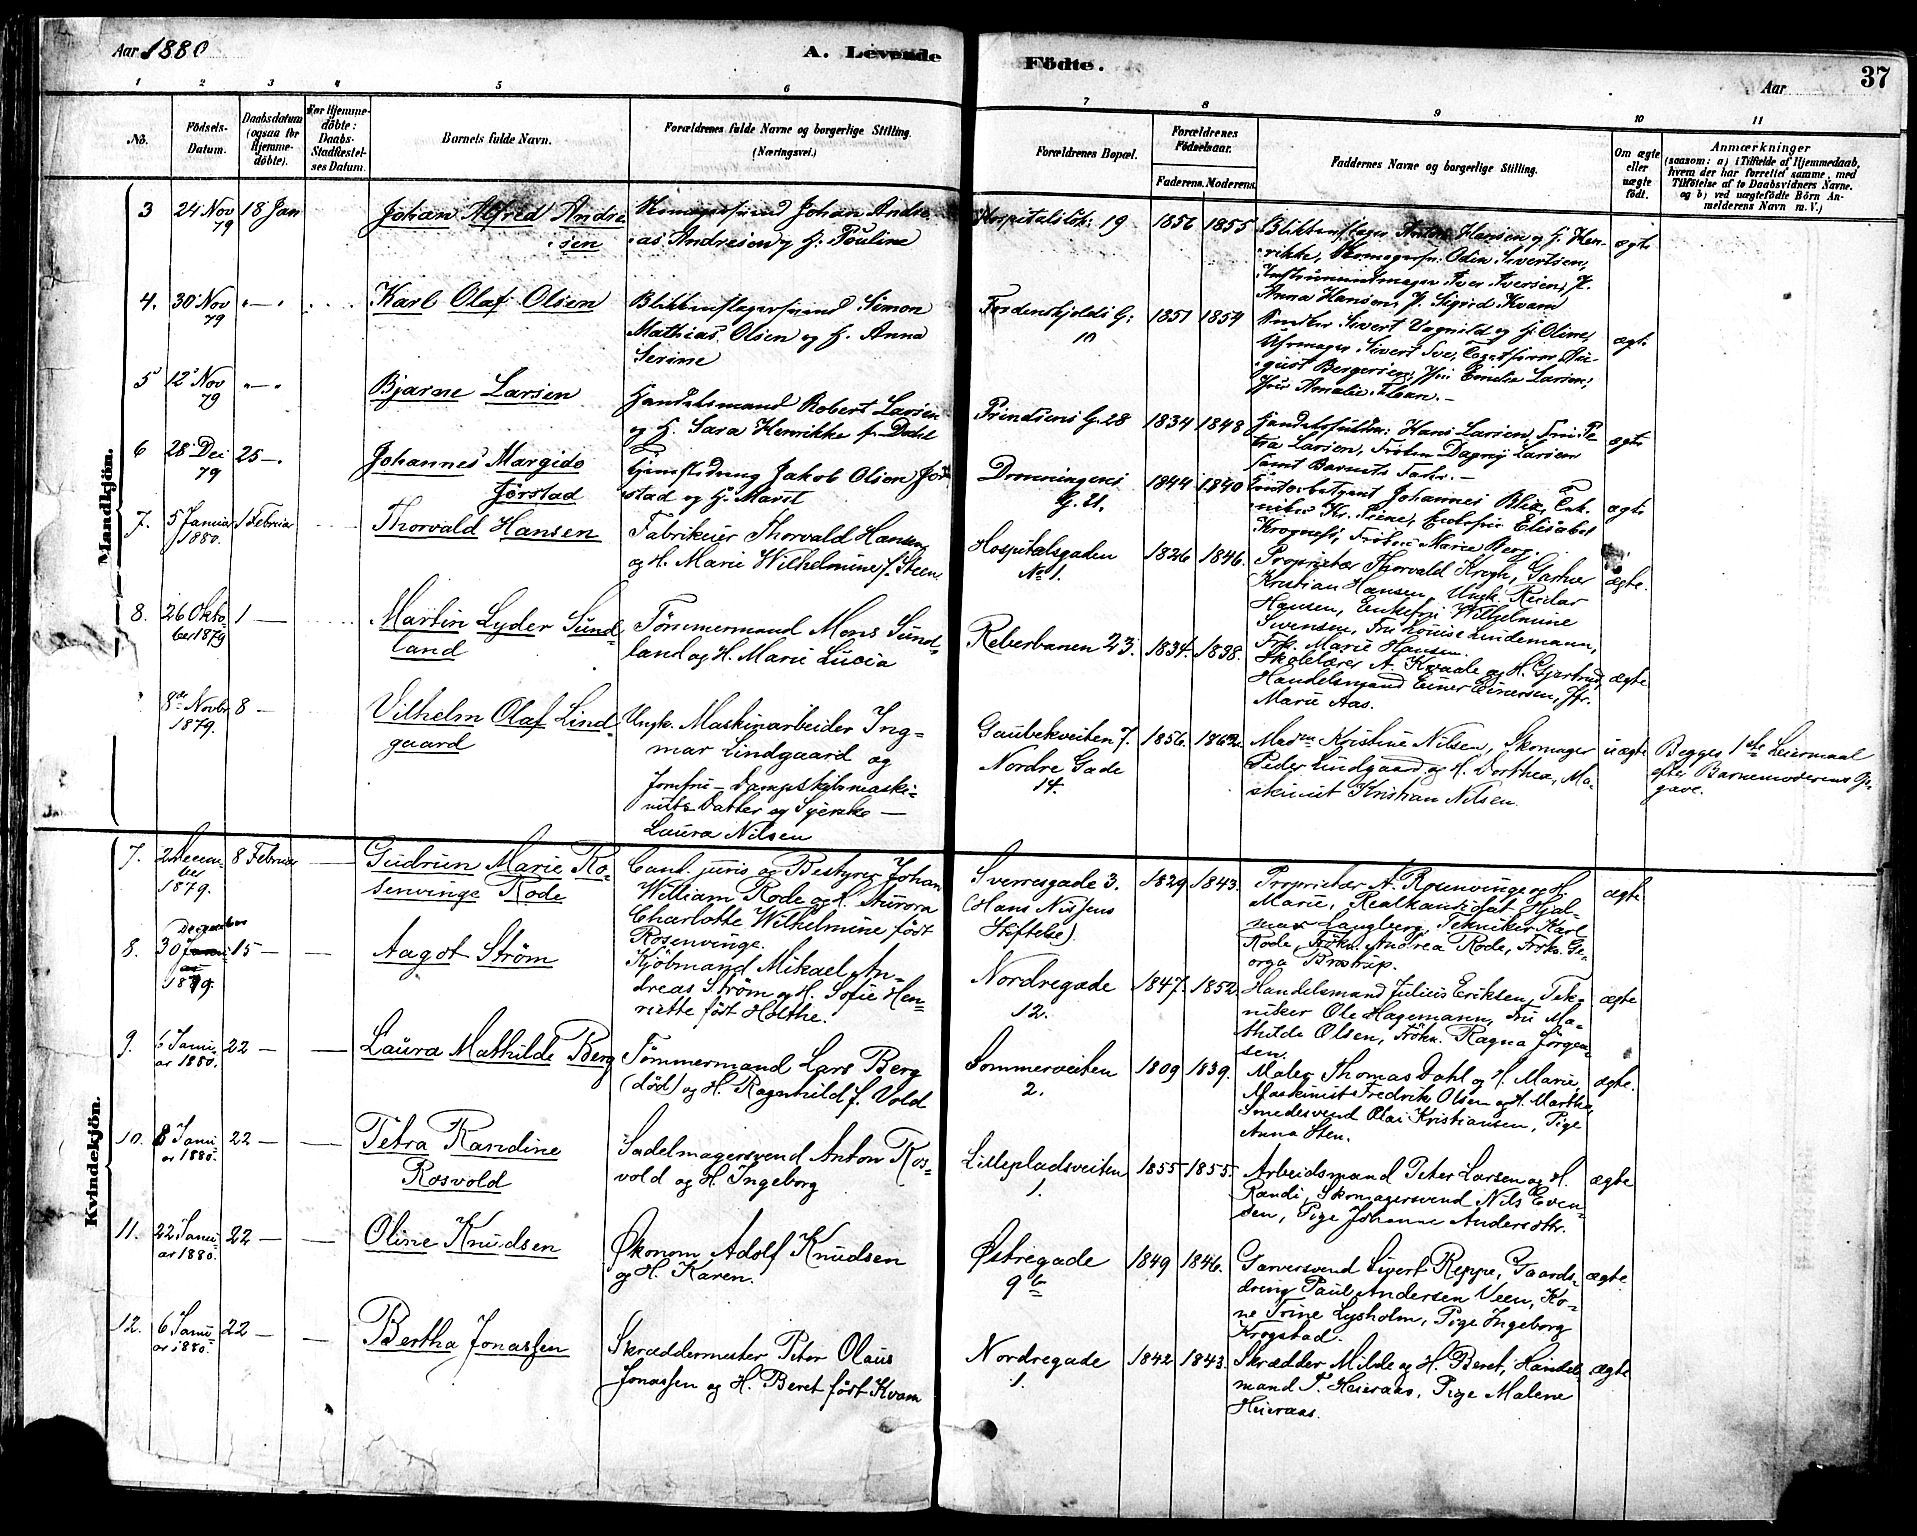 Aar 1880
A. Levende
Födte.
Aar
37
1 2 3 4 5 6 7 8 9 10 11
No.
Födsels-
Datum.
Daabsdatum
(ogsaa for
Hjemme-
döbte).
For Hjemme-
döbte:
Daabs-
Stadfæstel-
ses Datum.
Barnets fulde Navn.
Forældrenes fulde Navne og borgerlige Stilling.
(Næringsvei.)
Forældrenes Bopæl.
Forældrenes
Födselsaar.
Faderens. Moderens.
Faddernes Navne og borgerlige Stilling.
Om ægte
eller
uægte
födt.
Anmærkninger
(saasom: a) i Tilfælde af Hjemmedaab,
hvem der har forrettet samme, med
Tilföielse af to Daabsvidners Navne.
og b) ved uægtefödte Börn An-
melderens Navn m. V.)
Mandkjön.
3
24 Nov
79
18 Jan
Johan Alfred Andre
sen
Johan Andre
as Andresen og H. Pauline
19
1856 1855
Blikkenslager Hansen og H. Hen-
rikke, Odin Sivertsen,
Iver Iversen, J.
Anna Hansen, J. Sigrid Kvam
ægte
4.
30 Nov
79
" — "
Karl Olaf Olsen
Blikkenslagersvend Simon
Mathias Olsen og H. Anna
Serine
Tordenskjolds G.
10
1851 1854
Sivert Vagnild og H. Oline,
Uhrmager Sivert
Bergersen, Jfr. Emelie Larsen,
Jfr. Amalie
ægte
5
12 Nov
79
" — "
Bjarne Larsen
Handelsmand Robert Larsen
og H. Sara Henrikke f. Dahl
Prindsens G. 28
1834 1848
Hans Larsen,
Larsen, Fröken Dagny Larsen
samt Barnets Fader. —
ægte
6
28 Dec
79
25 — "
Johannes Margido
Jörstad
Jakob Olsen Jör
stad og H. Marit
Dronningens
G.
1844 1840
Johannes Blix,
Elisabet
Fröken Marie Berg.
ægte
7.
5 Januar
1880.
1 Februar
Thorvald Hansen
Fabrikeier Thorvald Hansen
og H. Marie Wilhelmine f. Steen
Hospitalsgaden
No 1.
1826 1846.
Proprietær Thorvald Krogh, Gartner
Kristian Hansen, Ungk. Reidar
Hansen, Enkefru Wilhelmine
Svensen, Fru Louise Lindemann,
Frk. Marie Hansen.
ægte.
8.
26 Okto-
ber 1879
1 —
Martin Lyder Sund-
land
Tömmermand Mons Sund-
land og H. Marie Lucia
Reberbanen 23.
1834. 1838.
Skolelærer A. Kvaale og H. Gjertrud,
Handelsmand Einer Einersen, Jfr.
Marie Aas.
ægte
8de Novbr
1879.
8 —
Vilhelm Olaf Lind
gaard
Ungk. Maskinarbeider Ing-
mar Lindgaard og
Jomfru — Dampskibsmaski-
nists Datter og Syerske —
Laura Nilsen
Gaubekveiten 7.
Nordre Gade
14.
1856. 1862.
Madm Kristine Nilsen, Skomager
Peder Lindgaard og H. Dorthea, Ma-
skinist Kristian Nilsen.
uægte
Begges 1ste Leiermaal
efter Barnemoderens Op-
gave.
Kvindekjön.
7.
2 Decem-
ber
1879.
8 Februar
—
Gudrun Marie Ro-
senvinge Rode
Cand. juris og Bestyrer Johan
William Rode og H. Aurora
Charlotte Wilhelmine, födt
Rosenvinge.
Sverresgade 3.
(Hans Nissens
Stiftelse).
1829 1843.
Proprietær A. Rosenvinge og H.
Marie, Realkandidat Hjal-
mar Langberg, Tekniker Karl
Rode, Frökn. Andrea Rode, Frökn. Ge-
orga Brostrup.
ægte
8.
December
30 Janu-
ar
1879.
15 —
Aagot Ström
Kjöbmand Mikael An-
dreas Ström og H. Sofie Hen-
riette födt Holthe.
Nordregade
12.
1847. 1852.
Handelsmand Julius Eriksen, Tek-
niker Ole Hagemann, Fru Ma-
thilde Olsen, Frökn. Ragna Jörgen-
sen.
ægte
9.
6 Janu-
ar 1880.
22 —
—
Laura Mathilde Berg
Tömmermand Lars Berg
(död) og H. Ragnhild f. Vold
Sommerveiten
2.
1809 1839.
Maler Thomas Dahl og H. Marie,
Maskinist Fredrik Olsen og H. Martha,
Smedesvend Olai Kristiansen, Pige
Anna Sten.
ægte.
10.
8 Janu-
ar 1880.
22 —
—
Petra Randine
Rosvold
Sadelmagersvend Anton Ros-
vold og H. Ingeborg
Lillepladsveiten
1.
1855 1855.
Arbeidsmand Peter Larsen og H.
Randi, Skomagersvend Nils Even-
sen, Pige Johanne Andersdtr.
ægte
11.
22 Janu-
ar 1880.
22 —
—
Oline Knudsen
Økonom Adolf Knudsen
og H. Karen.
Østregade
9b
1849 1846.
Garversvend Sivert Reppe, Gaards-
dreng Paul Andersen Veen, Ko-
ne Trine Lysholm, Pige Ingeborg
Krogstad.
ægte
12.
6 Janu-
ar 1880.
22 —
—
Bertha Jonassen
Skræddermester Peter Olaus
Jonassen og H. Beret födt Kvam
Nordregade
1.
1842 1843.
Skrædder Milde og H. Beret, Handels
mand P. Heieraas, Pige Malene
Heieraas.
ægte